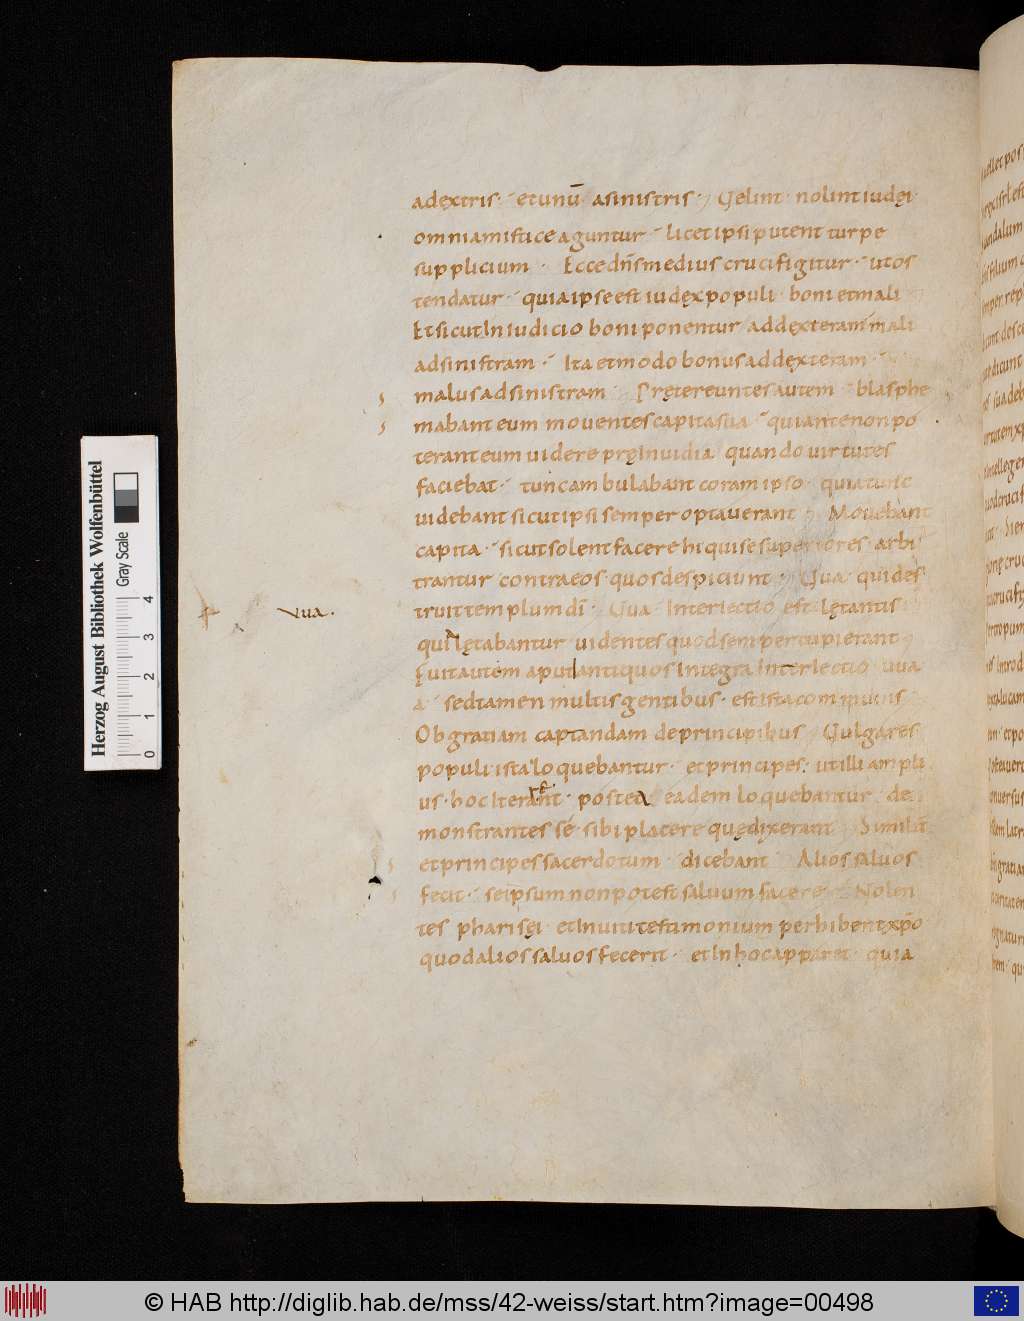 adextris · et unū asinistris · Uelint nolint iudęi ·
omnia mistice aguntur · licet ipsi putent turpe
supplicium · Ecce dn̄s medius crucifigitur · ut os
tendatur · quia ipse est iudęx populi boni et mali
Et sicut In iudicio boni ponentur ad dexteram mali
ad sinistram · Ita et modo bonus ad dexteram ·
malus ad sinistram · Prętereuntes autem blasphe
mabant eum mouentes capita sua · quia ante non po
terant eum uidere prę Inuidia quando uirtutes
faciebat · tunc ambulabant coram ipso · quia tunc
uidebant sicut ipsi semper optauerant · Mouebant
capita · sicut solent facere hi qui se superiores arbi
trantur contra eos quos despiciunt · Uua qui des
truit templum dī · Uua Interiectio est lętantis
Vua .
qui lętabantur uidentes quod semper cupierant
Fuit autem aput antiquos Integra Interiectio uua
a · sed tamen multis gentibus · est ista communis
Ob gratiam captandam de principibus Uulgares
populi ista loquebantur · et principes · ut illi ampli
us · hoc Iterant · postea eadem loquebantur de
monstrantes sé sibi placere quę dixerant Similit̄
et principes sacerdotum dicebant Alios saluos
fecit · se ipsum non potest saluum facere · Nolen
tes pharisęi et Inuiti testimonium perhibent xp̄o
quod alios saluos fecerit · et In hoc apparet quia
Herzog August Bibliothek Wolfenbüttel
Gray Scale
0 1 2 3 4
© HAB http://diglib.hab.de/mss/42-weiss/start.htm?image=00498